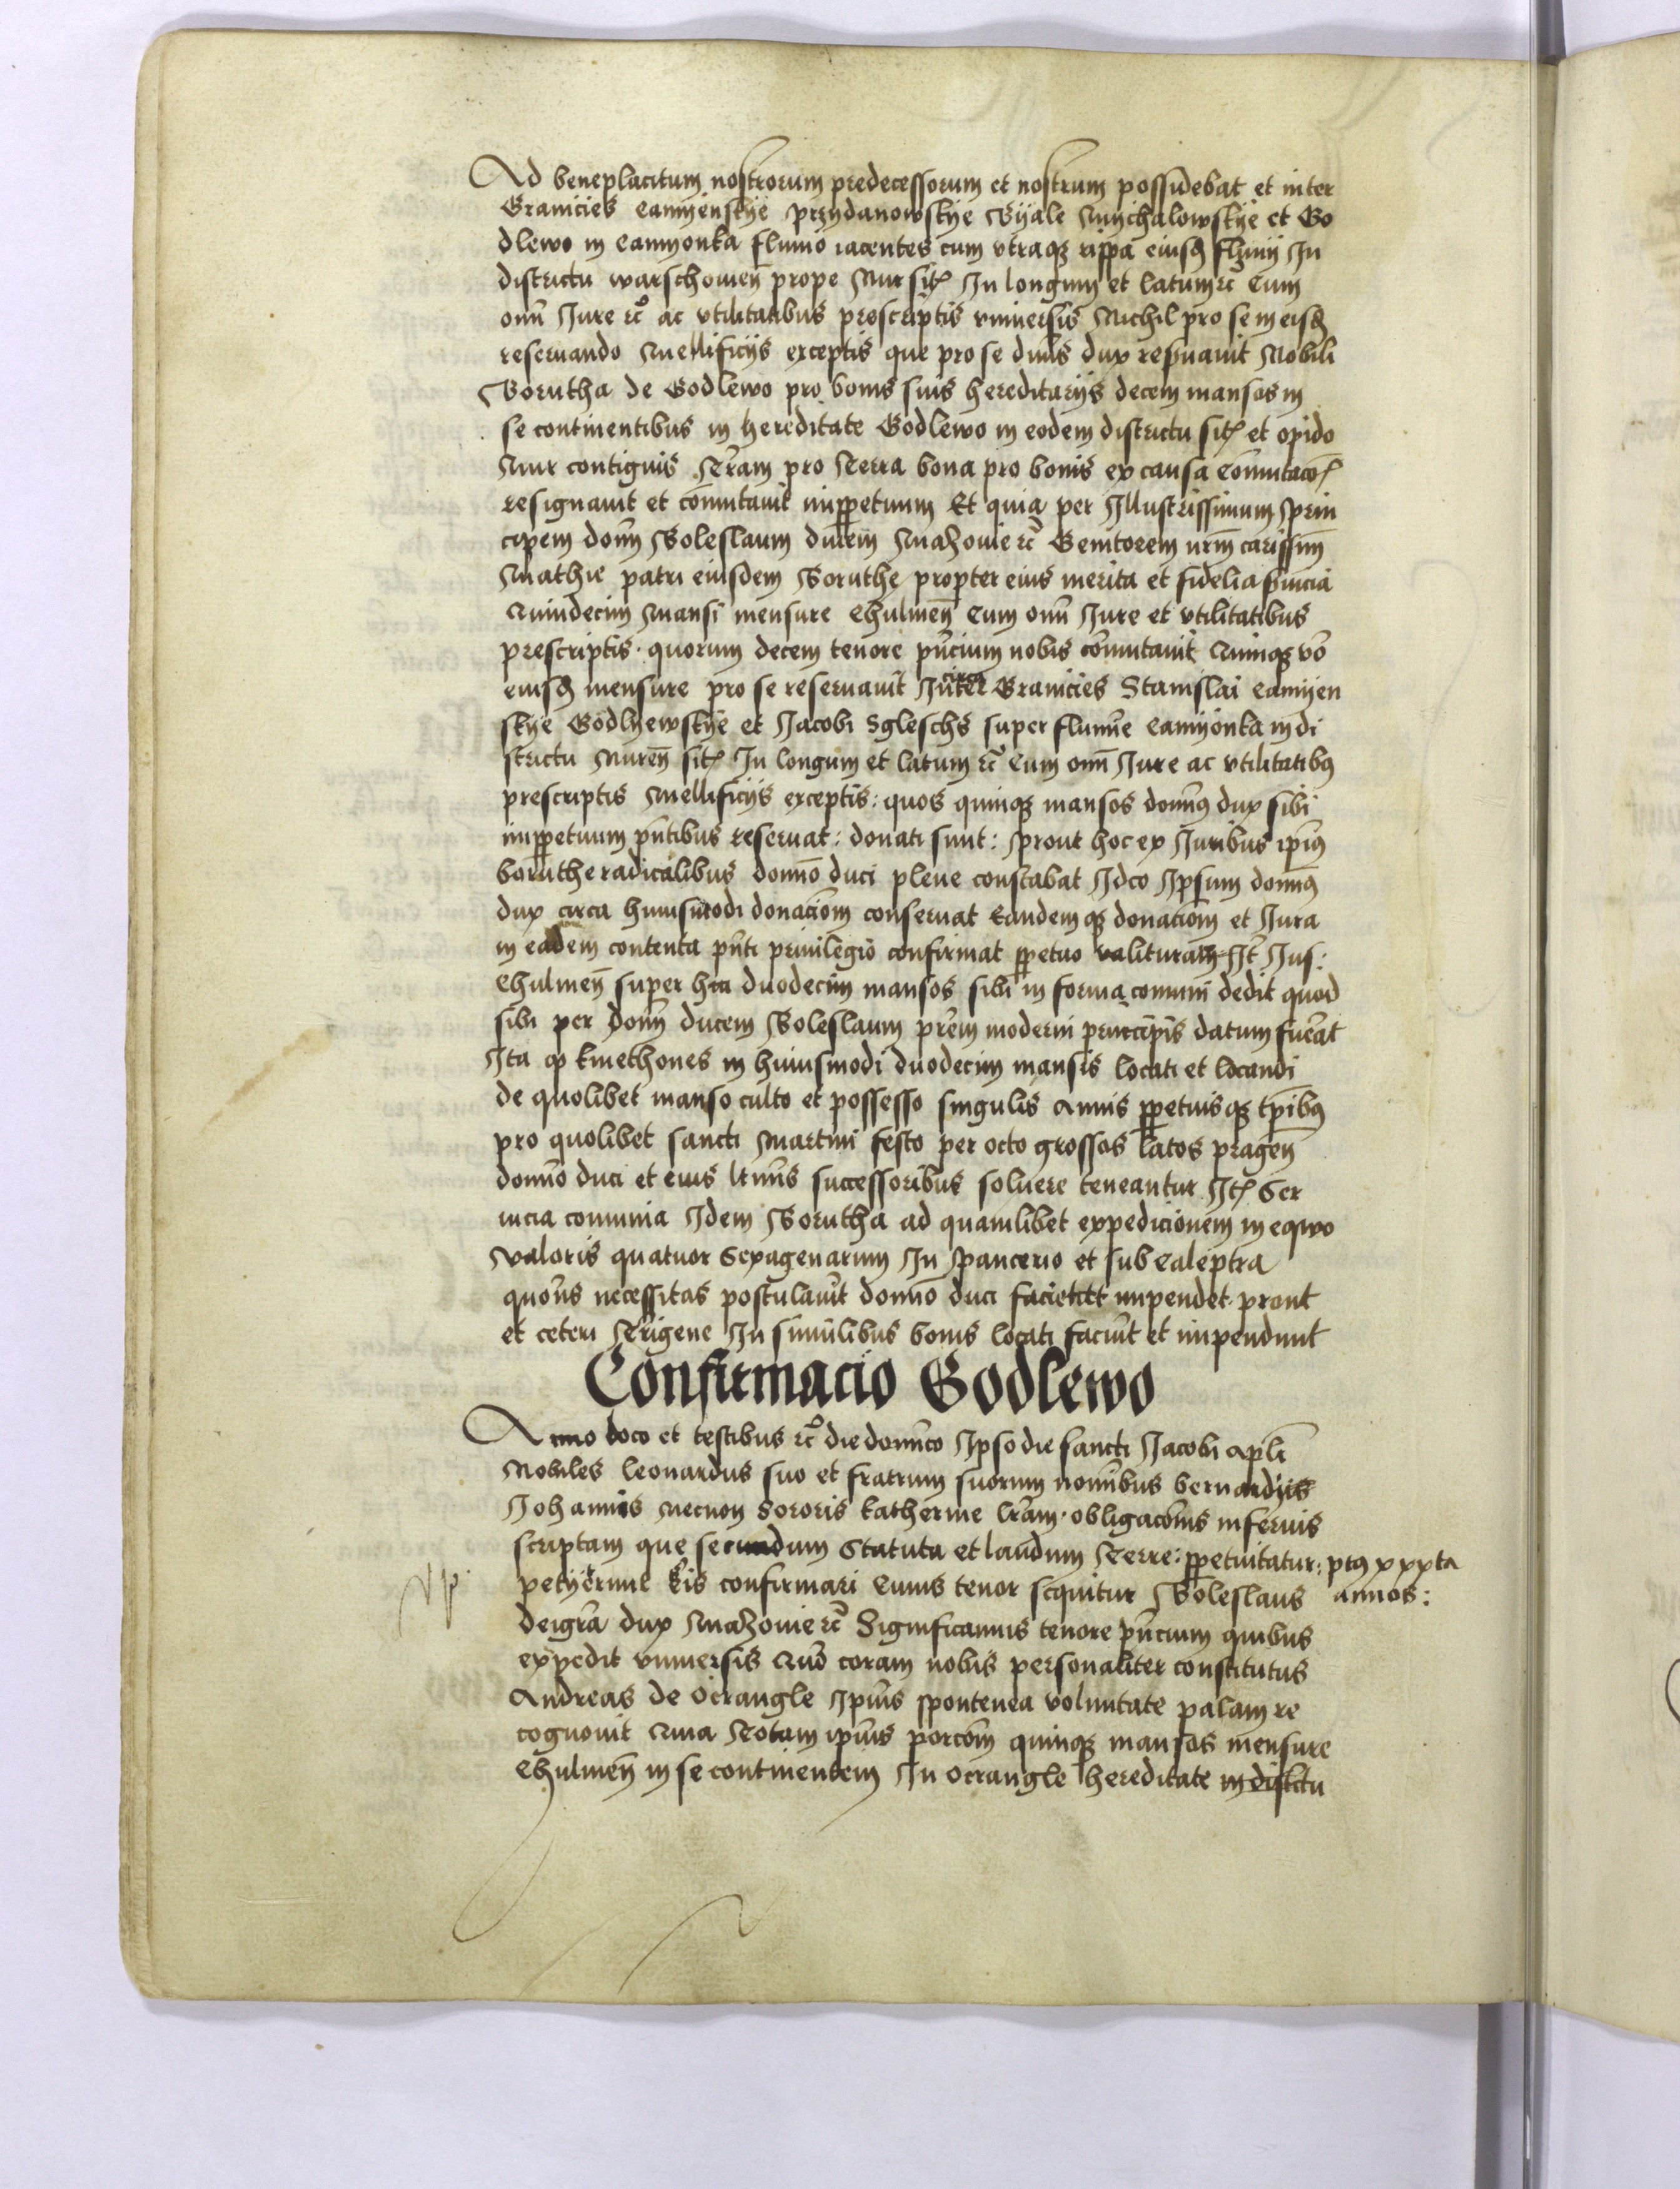 Ad beneplacitum nostrorum predecessorum et nostrum possidebat et inter
Granicies Camyenskye przydanowskye Byale Mychalowskye et Go
dlewo in Camyonka fluuio iacentes cum vtraqꝫ rippa eiusd fluuij In
districtu warschouien̄ prope Nur sit̄ In longum et latum ⁊c̄ Cum
omī Jure ⁊c̄ ac vtilitatibus prescriptis vniuersis Nichil pro se in eisd
reseruando Mellificijs exceptis que pro se dnūs dux reseruauit Nobili
Borutha de Godlewo pro bonis suis hereditarijs decem mansos in
se continentibus in hereditate Godlewo in eodem districtu sit̄ et opido
Nur contiguis Terram pro Terra bona pro bonis ex causa Com̄utacōī
resignauit et com̄utauit inp̱petuum Et quia per Illustrissimum prin
cipem dom̄ Boleslaum ducem Mazouie ⁊c̄ Genitorem nr̄m carissim̄
Mathie patri eiusdem Boruthe propter eius merita et fidelia seruicia
Quindecim Mansi mensure Chulmen̄ Cum omī Jure et vtilitatibus
prescriptis quorum decem tenore pn̄cium nobis com̄utauit Quinqꝫ vō
eiusd mensure pro se reseruauit Inter circa Granicies Stanislai Camyen
skye Godlyewskye et Jacobi Sgleschs super fluuīe Camyonka in di
strictu Nuren̄ sit̄ In longum et latum ⁊c̄ Cum omī Jure ac vtilitatibꝰ
prescriptis Mellificijs exceptis: quos quinqꝫ mansos domnꝰ dux sibi
inp̱petuum pn̄tibus reseruat: donati sunt: prout hoc ex Juribus ip̄ius
boruthe radicalibus domīo duci plene constabat Idco Ipsum domnꝰ
dux circa huiusmodi donaciōm conseruat Eandemqꝫ donatiōm et Jura
in eadem contenta pn̄ti priuilegio confirmat p̱petuo valituram It̄ Jus:
Chulmen̄ super hīi duodecim mansos sibi in forma comuni dedit quod
sibi per dom̄ ducem Boleslaum pr̄em moderni principis datum fuerat
Ita ꝙ kmethones in huiusmodi duodecim mansis locati et locandi
de quolibet manso culto et possesso singulis Annis p̱petuisqꝫ tp̄ibꝰ
pro quolibet sancti Martini festo per octo grossos latos pragen̄
domīo duci et eius ltīmis successoribus soluere teneantur It̄ Ser
uicia comunia Idem Borutha ad quamlibet expedicionem in eqwo
valoris quatuor Sexagenarum In pancerio et sub Caleptra
quocīes necessitas postulauīt domīo duci faciet et inpendet prout
et ceteri Terrigene In similibus bonis locati faciūt et inpendunt
Confirmacio Godlewo
Anno loco et testibus ⁊c̄ die domīco Ipso die sancti Jacobi apl̄i
Nobiles Leonardus suo et fratrum suorum nomībus bernardijs
Johannis Necnon Sororis Katherine lrām obligacōnis inferius
scriptam que secundum Statuta et laudum Terre: p̱petuitatur: ptꝰ xxxta
petyerunt eis confirmari Cuius tenor sequitur Boleslaus annos:
dei grā dux Mazouie ⁊c̄ Significamus tenore pn̄cium quibus
expedit vniuersis Quō coram nobis personaliter constitutus
Andreas de Ocrangle Ip̄ius spontenea voluntate palam re
cognouit Quia Totam ip̄ius porcōm quinqꝫ mansos mensure
Chulmen̄ in se continentem In Ocrangle hereditate in distctu